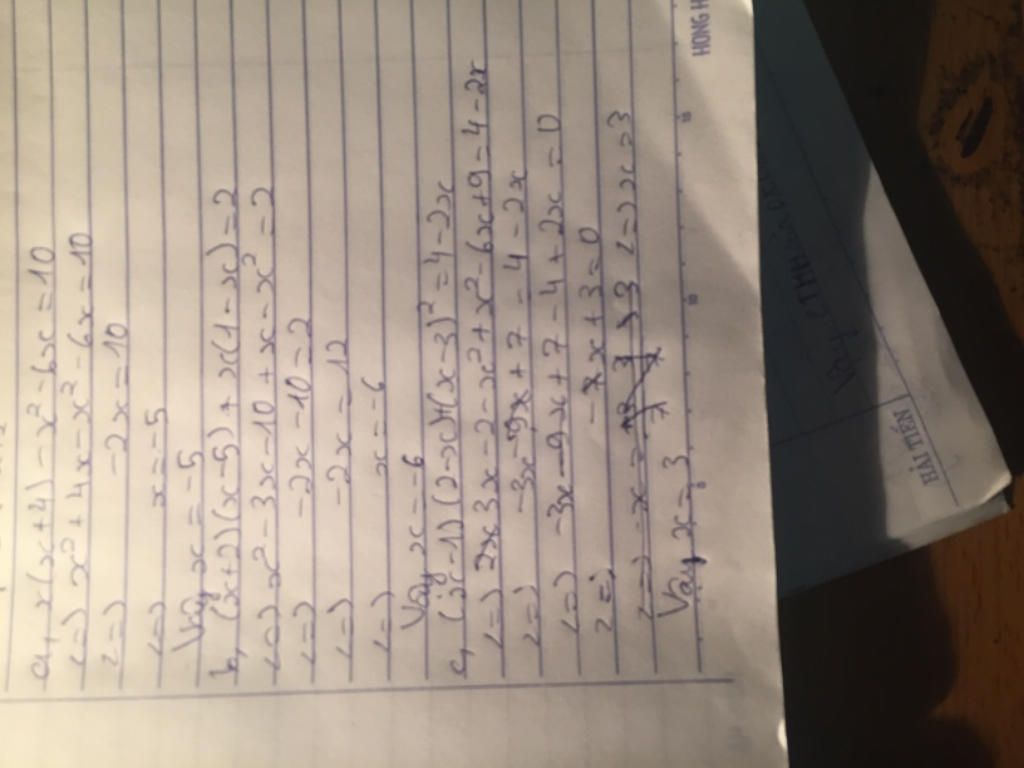 a, x(x+4) - x² - 6x = 10
<=> x² + 4x - x² - 6x = 10
<=> -2x = 10
<=> x = -5
Vậy x = -5
b, (x+2)(x-5) + x(1-x) = 2
<=> x² - 3x - 10 + x - x² = 2
<=> -2x - 10 = 2
<=> -2x = 12
<=> x = -6
Vậy x = -6
c, (x-1)(2-x)+(x-3)² = 4-2x
<=> 2x 3x - 2 - x² + x² - 6x + 9 = 4 - 2x
<=> -3x - 9x + 7 = 4 - 2x
<=> -3x - 9x + 7 - 4 + 2x = 0
<=> -x + 3 = 0
<=> -x = -3 <=> x = 3
Vậy x = 3
HONG H
HẢI TIẾN
CTMHH